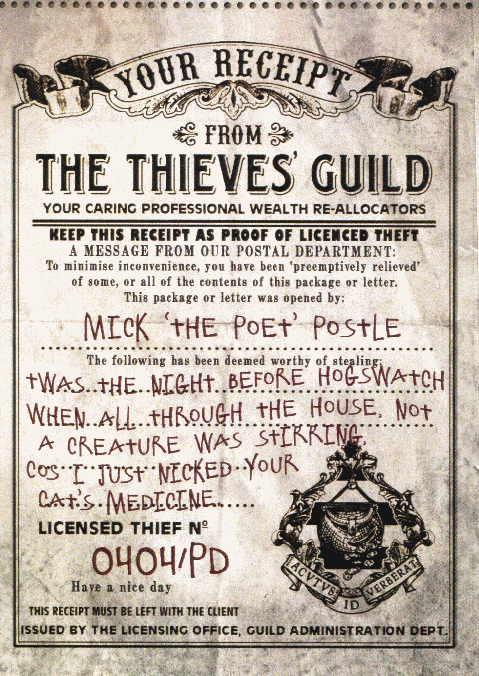 YOUR RECEIPT
FROM
THE THIEVES' GUILD
YOUR CARING PROFESSIONAL WEALTH RE-ALLOCATORS
KEEP THIS RECEIPT AS PROOF OF LICENCED THEFT
A MESSAGE FROM OUR POSTAL DEPARTMENT:
To minimise inconvenience, you have been 'preemptively relieved'
of some, or all of the contents of this package or letter.
This package or letter was opened by:
MICK 'THE POET' POSTLE
The following has been deemed worthy of stealing:
TWAS THE NIGHT BEFORE HOGSWATCH
WHEN ALL THROUGH THE HOUSE, NOT
A CREATURE WAS STIRRING,
COS I JUST NICKED YOUR
CAT'S MEDICINE
LICENSED THIEF Nº
0404/PD
Have a nice day
ACVTVS ID VERBERAT
THIS RECEIPT MUST BE LEFT WITH THE CLIENT
ISSUED BY THE LICENSING OFFICE, GUILD ADMINISTRATION DEPT.